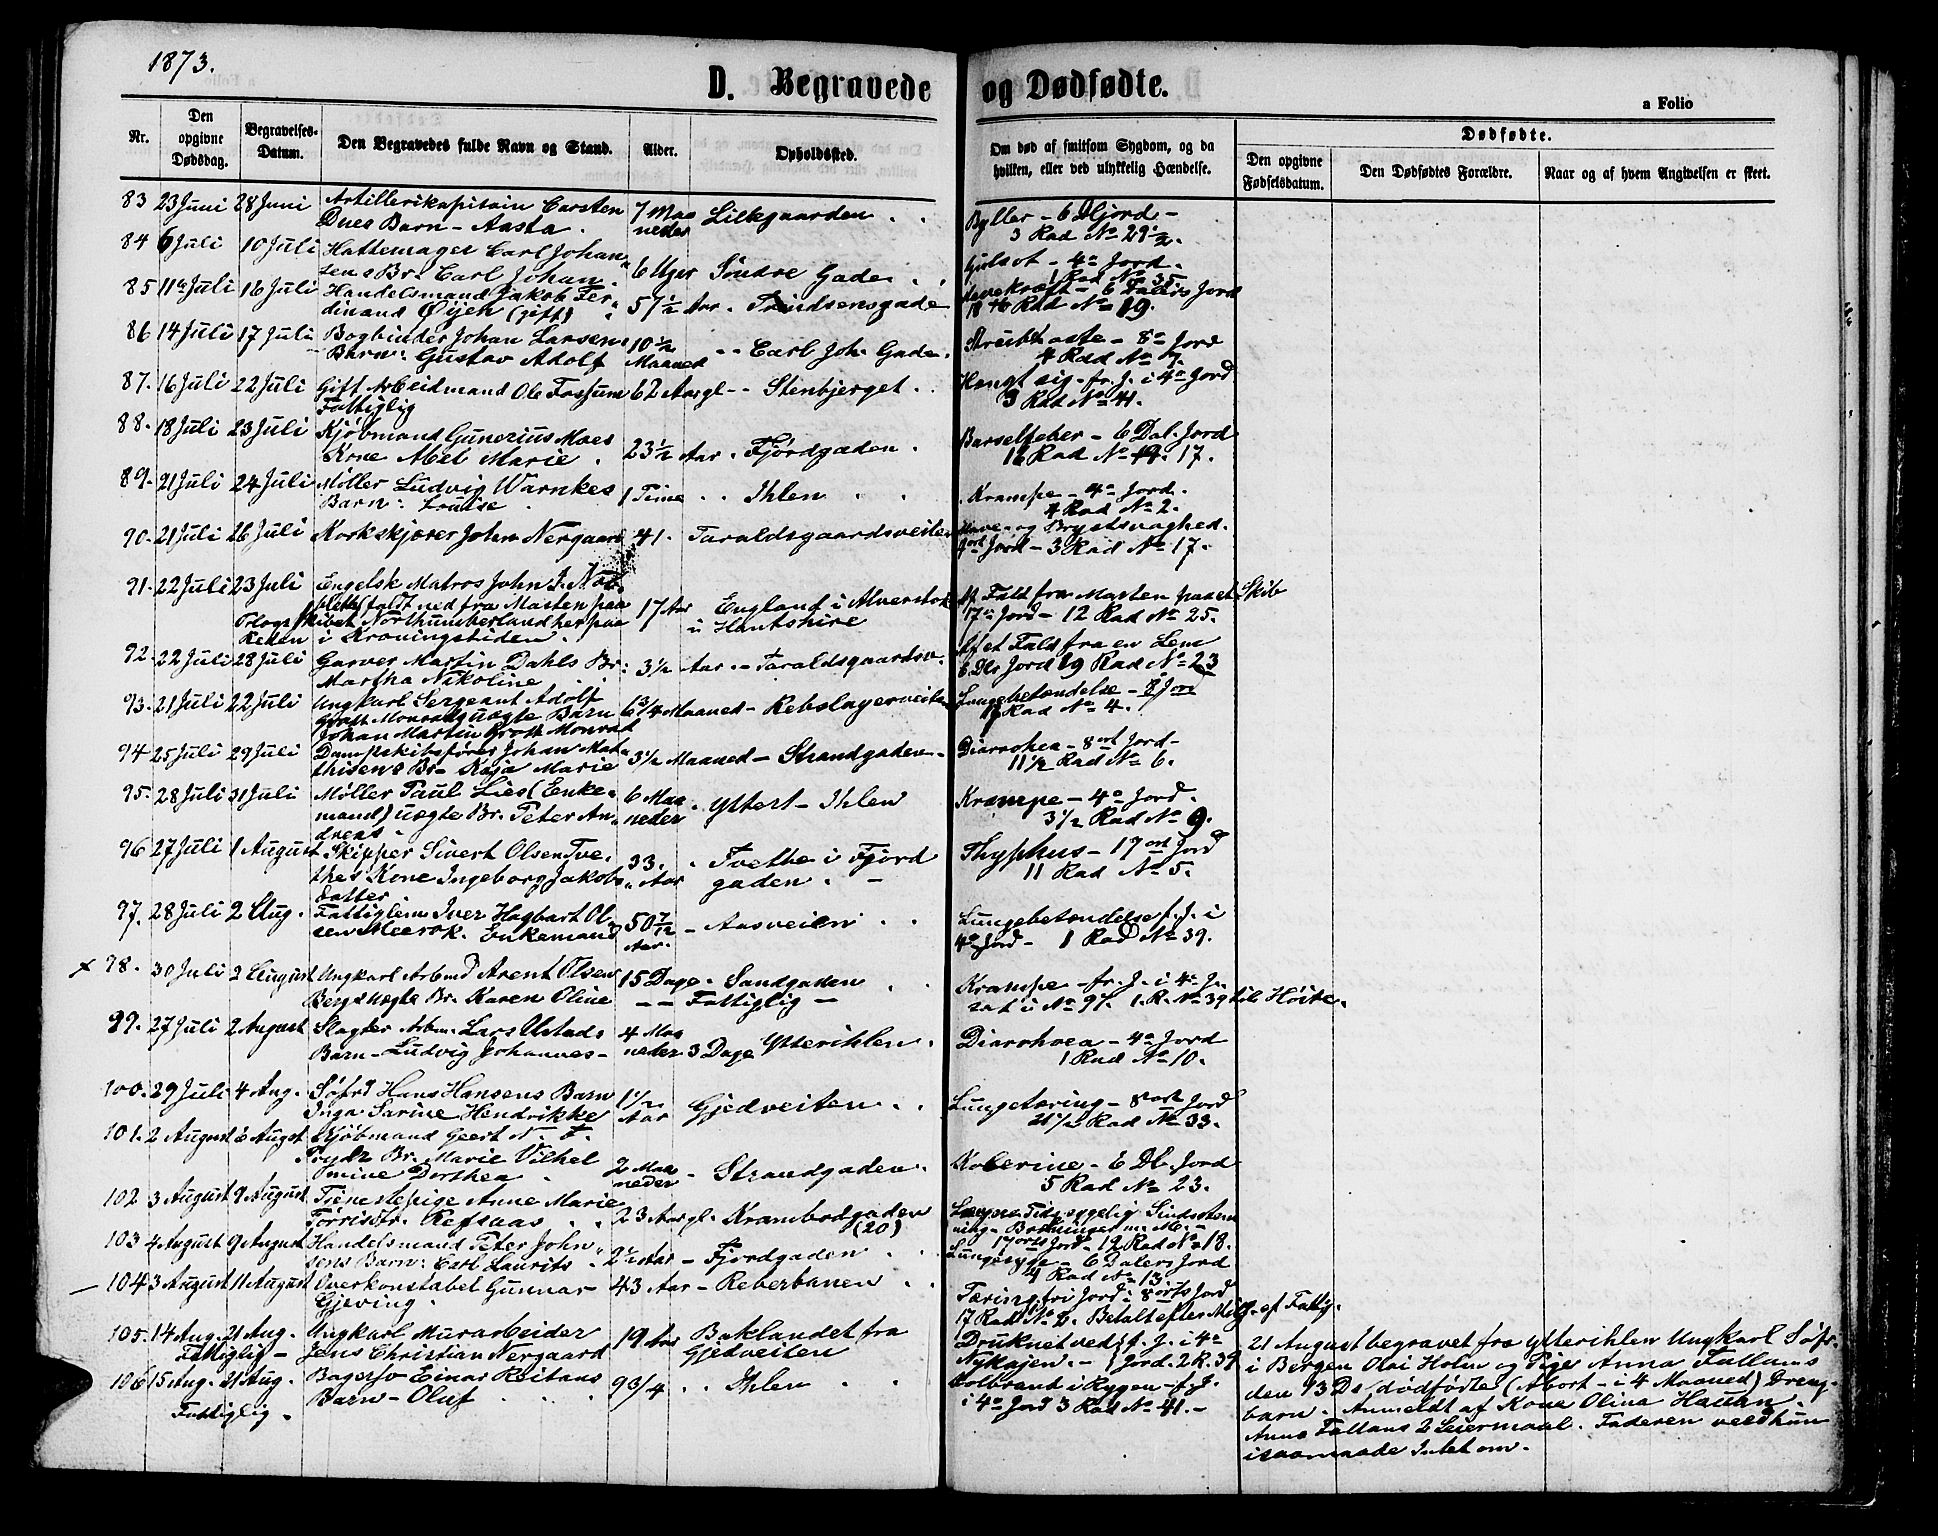 1873.
D. Begravede og Dødfødte.
a Folio
Nr.
Den opgivne Dødsdag.
Begravelses-Datum.
Den Begravedes fulde Navn og Stand.
Alder.
Opholdssted.
Om død af smitsom Sygdom, og da hvilken, eller ved ulykkelig Hændelse.
Dødfødte.
Den opgivne Fødselsdatum.
Den Dødfødtes Forældre.
Naar og af hvem Angivelsen er skeet.
83 23 Juni 28 Juni Artillerikapitain Carsten 7 Maa Lilkgaarden
Dues Barn - Aasta. neder Byller - 6 Dljord -
3 Rad No 29½.
84 6 Juli 10 Juli Hattemager Carl Johan
sens Br. Carl Johan. 6 Uger Søndre Gade. Gulsot - 4a Jord.
1 Rad No 35
85 11te Juli 16 Juli Handelsmand Jakob Fer
dinand Øijen (gift) 57½ Aar. 6 Dalers Jord
Rad No 19.
86 14 Juli 17 Juli Bogbinder Johan Larsens 10½ Carl Joh. Gade. Strubhoste - 8de Jord
Barn: Gustav Adolf Maaned 4 Rad No 7.
87. 16 Juli 22 Juli Gift Arbeidmand Ole Fossum 62 Aar gl - Stenbjerget. Hængt sig - fr. J. i 4a Jord
Fattiglig 3 Rad No 41.
88. 18 Juli 23 Juli Kjøbmand Gunerius Moes
Kone Abel Marie. 23½ Aar. Fjordgaden. Barselfeber - 6 Dal. Jord
16 Rad No 17.
89. 21 Juli 24 Juli Møller Ludvig Warnkes
Barn: Louise. 1 Time Ihlen Krampe - 4a Jord.
4 Rad No 2.
90. 21 Juli 26 Juli Korkskjærer John Nergaard 41. Taraldsgaardsveiten Mave- og Brystsvaghed.
Jord - 3 Rad No 17.
91. 22 Juli 23 Juli Engelsk Matros John J. Nob
faldt ned fra Masten paa 17 Aar England i Alverstok Af Fald fra Masten paa et Skib
skibet Northumberland her paa i Hantshire 17de Jord - 12 Rad No 25.
Reden i Kroningstiden.
92. 22 Juli 28 Juli Garver Martin Dahls Br. 3½ Aar. - Taraldsgaardsv. Af et Fald fra en Lem
Martha Nikoline 6 Dlr Jord 19 Rad No 23
93. 21 Juli 22 Juli Ungkarl Sergeant Adolf
uægte Barn 6¾ Maaned - Rebslagerveiten Lungebetændelse - 8 Jord
Johan Martin Monrad Rad No 4.
94 25 Juli 29 Juli Dampskibsfører Johan Mat
thisens Br. Kaja Marie 3½ Maaned - Strandgaden - Diarrohea - 8ort Jord -
11½ Rad No 6.
95. 28 Juli 31 Juli Møller Paul Lies (Enke- 6 Maa
mand) uægte Br. Peter An neder Yttert - Ihlen Krampe - 4a Jord.
dreas. 3½ Rad No 9.
96 27 Juli 1 August Skipper Sivert Olsen Tve. 33. Tvethe i Fjord Thyphus - 17ort Jord
thes Kone Ingeborg Jakobs Aar gaden. - 11 Rad No 5.
datter.
97. 28 Juli 2 Aug. Fattiglem Iver Hagbart Ol- 50 7/12 - Aasveien Lungebetændelse f. J. i
sen Meerok. Enkemand Aar. 4a Jord - 1 Rad No 39.
98. 30 Juli 2 August Ungkarl Arbmd Arent Olsen 15 Dage. Sandgaden Krampe - fr. J. i 4a J.
Bergs uægte Br. Karen Oline - Fattiglig - sat i No 97. 1. R. No 39 til Høire.
99. 27 Juli 2 August Slagter Arbm. Lars Olstads 4 Maa
Barn - Ludvig Johannes - neder 3 Dage Ytterihlen. Diarrohoea - 4a Jord
1 Rad No 10.
100. 29 Juli 4 Aug. Søfrd Hans Hansens Barn 1½ Gjedveiten Lungetæring - 8ort Jord
Inga Sarine Hendrikke Aar Rad No 33.
101. 2 August 6 August Kjøbmand Geert N. T.
Prydz Br. Marie Vilhel 2 Maa
mine Dorthea neder - Strandgaden. Kolerine - 6 Dl. Jord
5 Rad No 23.
102 3 August 9 August Tjenestepige Anne Marie
Tørrisdr. Refsaas 23 Aar gl. Krambodgaden
(20) 17orts Jord - 12 Rad No 18.
103 4 August 9 August Handelsmand Peter John
sens Barn: Carl Laurits 2½ Aar - Fjordgaden Lungesyge - 6 Dalers Jord
4 Rad No 13
104 3 August 11 August Overkonstabel Gunnar 43 Aar - Reberbanen Tæring. fri Jord: 8orts Jord
Gjeving. 17 Rad No 2. Betalt efter Meg. af Fattig.
105. 14 Aug. 21 Aug. Ungkarl Murarbeider 19 Aar Baklandet fra Druknet ved f. J. i 4a
Fattiglig - Jens Christian Nergaard Gjedveiten Nykajen. - Jord. 2 R. 39
106 15 Aug. 21 Aug. Bagersv Einar Reitans 9 3/4 Ihlen Kolbrand i Rygen - f. J.
Fattiglig. Barn - Oluf i 4a Jord 3 Rad No 41. -
21 August begravet fra Ytterihlen Ungkarl Søfr.
i Bergen Olai Holm og Pige Anna Fallans
den 13 Ds dødfødte (Abort - i 4 Maaned) Dreng-
barn. Anmeldt af Kone Olina Hauan.
Anna Fallans 2 Leiermaal. Faderen ved hun
isaamaade Intet om.